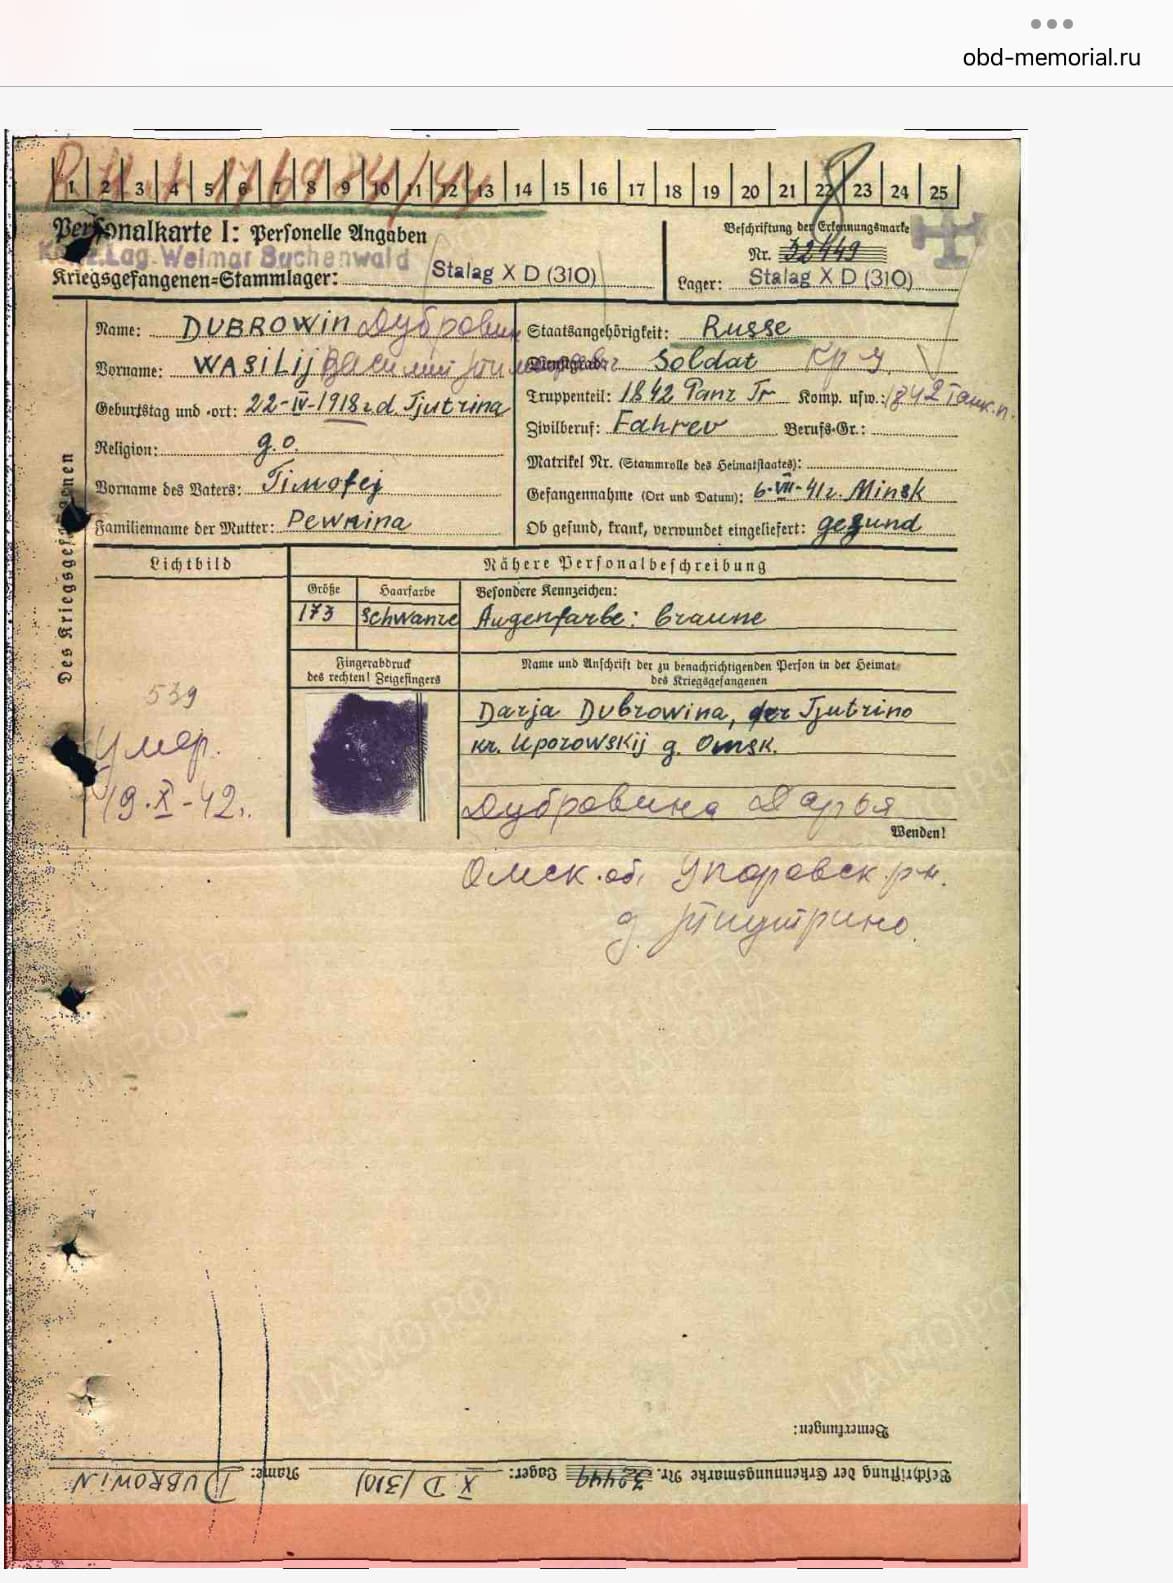 obd-memorial.ru
1 2 3 4 5 6 7 8 9 10 11 12 13 14 15 16 17 18 19 20 21 22 23 24 25
8
Personalkarte I: Personelle Angaben
Beschriftung der Erkennungsmarke
Nr. 32449
Lag. Weimar Buchenwald
Kriegsgefangenen=Stammlager: Stalag X D (310)
Lager: Stalag X D (310)
Des Kriegsgefangenen
Name: DUBROWIN Дубровин
Vorname: WASILIJ Василий
Geburtstag und -ort: 22-IV-1918 r.d. Tjutrina
Religion: g.o.
Vorname des Vaters: Timofej
Familienname der Mutter: Pewnina
Staatsangehörigkeit: Russe
Dienstgrad: Soldat Кр-ц
Truppenteil: 1842 Panz Tr Komp. usw.: 1842 Танк.п.
Zivilberuf: Fahrer Berufs-Gr.:
Matrikel Nr. (Stammrolle des Heimatstaates):
Gefangennahme (Ort und Datum): 6-VII-41 r. Minsk
Ob gesund, krank, verwundet eingeliefert: gesund
Lichtbild
Nähere Personalbeschreibung
Größe
Haarfarbe
Besondere Kennzeichen:
173
Schwarze
Augenfarbe: braune
Fingerabdruck
des rechten! Zeigefingers
Name und Anschrift der zu benachrichtigenden Person in der Heimat
des Kriegsgefangenen
539
Умер.
19.X-42.
Darja Dubrowina, der Tjutrino
kr. Uporowskij g. Omsk.
Дубровина Дарья
Wenden!
Омск.об. Упоровск р-н.
д. Тютрино.
Bemerkungen:
Beschriftung der Erkennungsmarke Nr. 32449 Lager: X D (310) Name: DUBROWIN